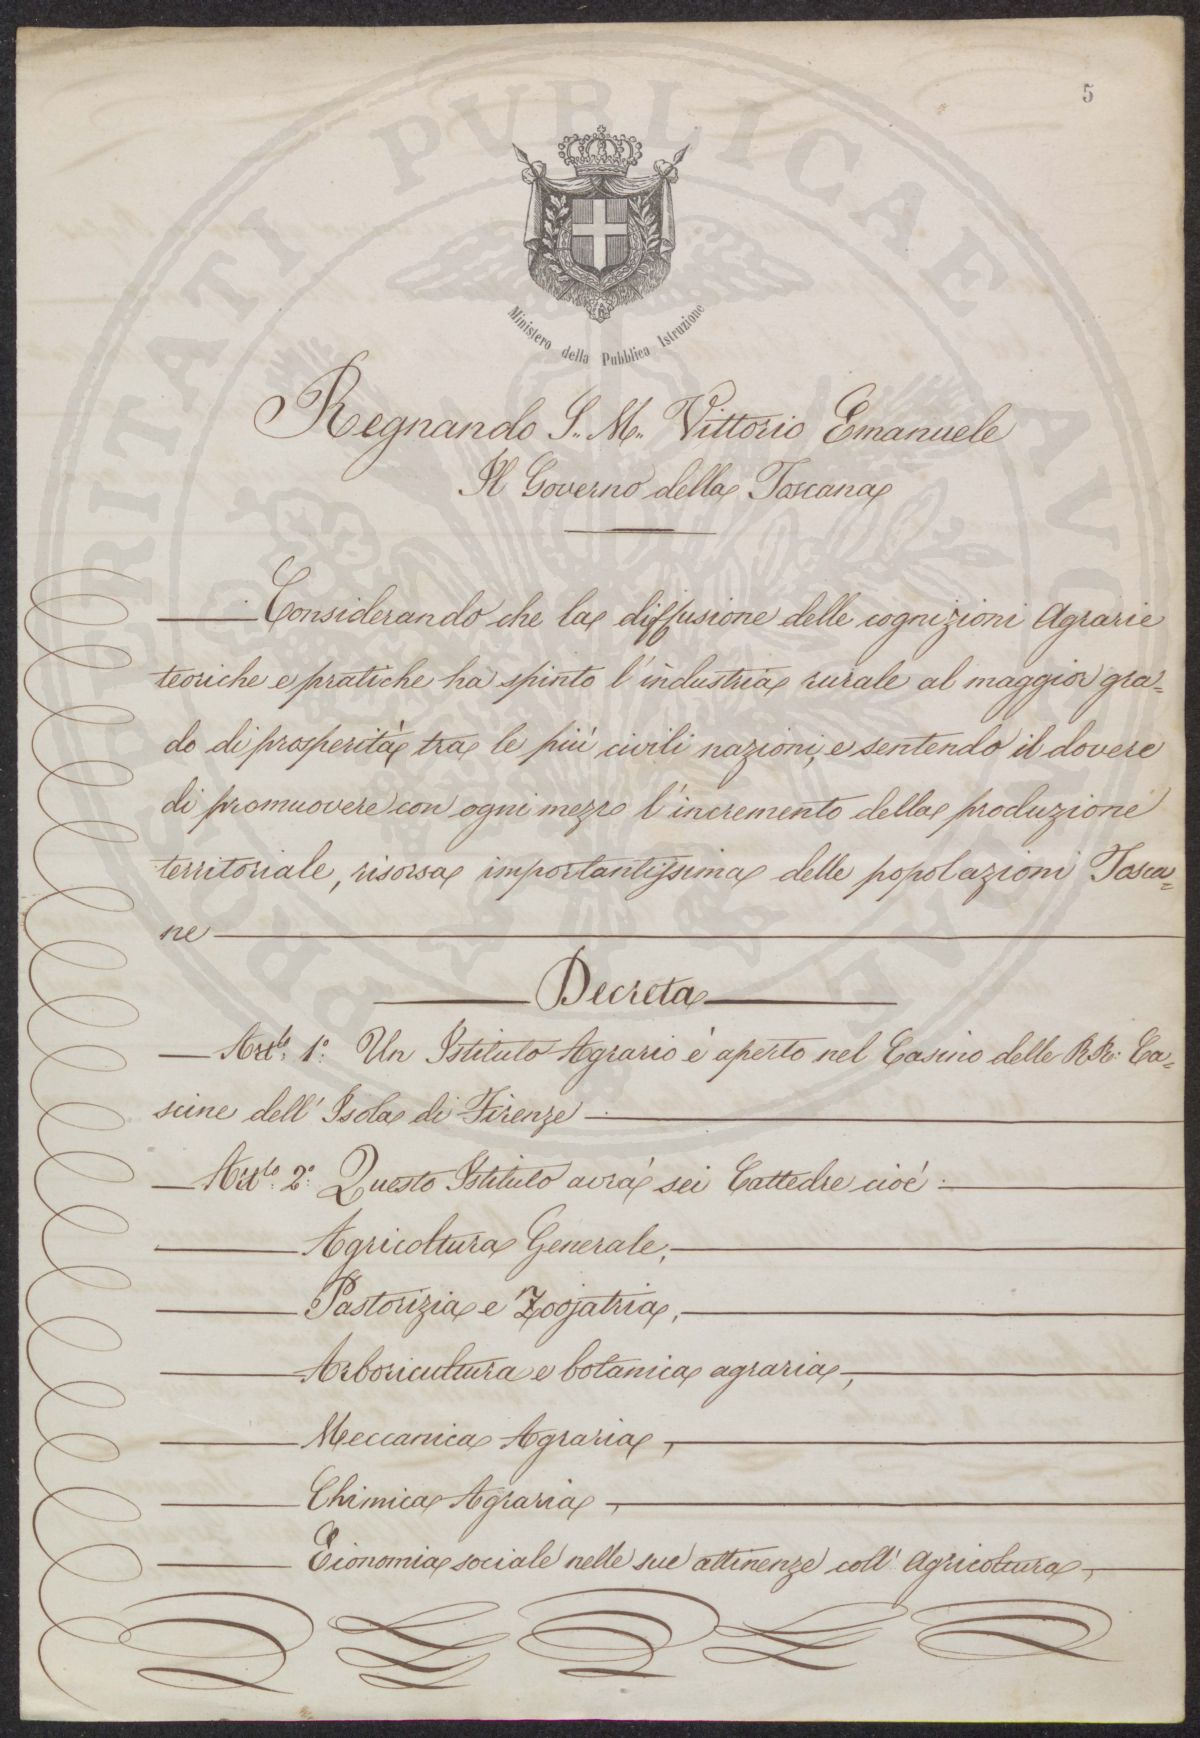 5
Ministero della Pubblica Istruzione
Regnando S. M. Vittorio Emanuele
Il Governo della Toscana
Considerando che la diffusione delle cognizioni Agrarie
teoriche e pratiche ha spinto l'industria rurale al maggior gra=
do di prosperità tra le più civili nazioni, e sentendo il dovere
di promuovere con ogni mezzo l'incremento della produzione
territoriale, risorsa importantissima delle popolazioni Tosca=
ne
Decreta
Artlo: 1º: Un Istituto Agrario è aperto nel Casino delle RR: Ca=
scine dell'Isola di Firenze
Artlo: 2º: Questo Istituto avrà sei Cattedre cioè:
Agricoltura Generale,
Pastorizia e Zoojatria,
Arboricultura e botanica agraria,
Meccanica Agraria,
Chimica Agraria,
Economia sociale nelle sue attinenze coll'Agricoltura,
PROSPERITATI PUBLICAE AVGENDAE